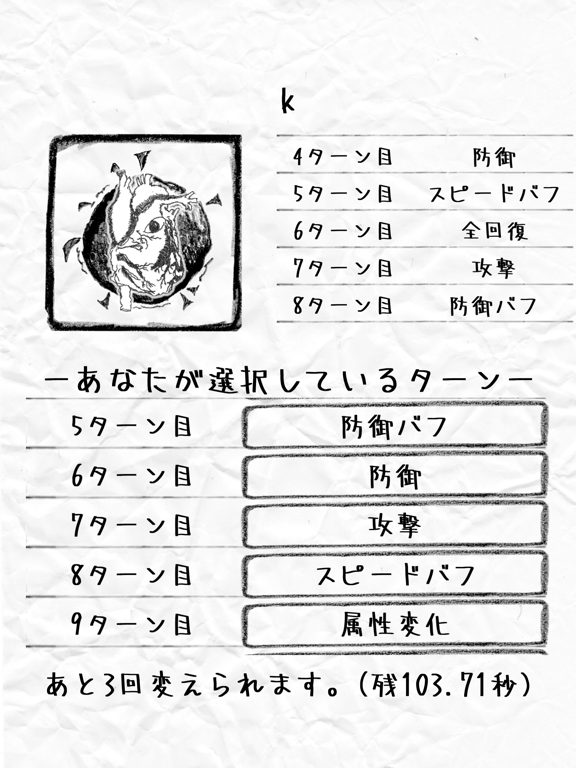 k
4ターン目 防御
5ターン目 スピードバフ
6ターン目 全回復
7ターン目 攻撃
8ターン目 防御バフ
ーあなたが選択しているターンー
5ターン目 防御バフ
6ターン目 防御
7ターン目 攻撃
8ターン目 スピードバフ
9ターン目 属性変化
あと3回変えられます。(残103.71秒)